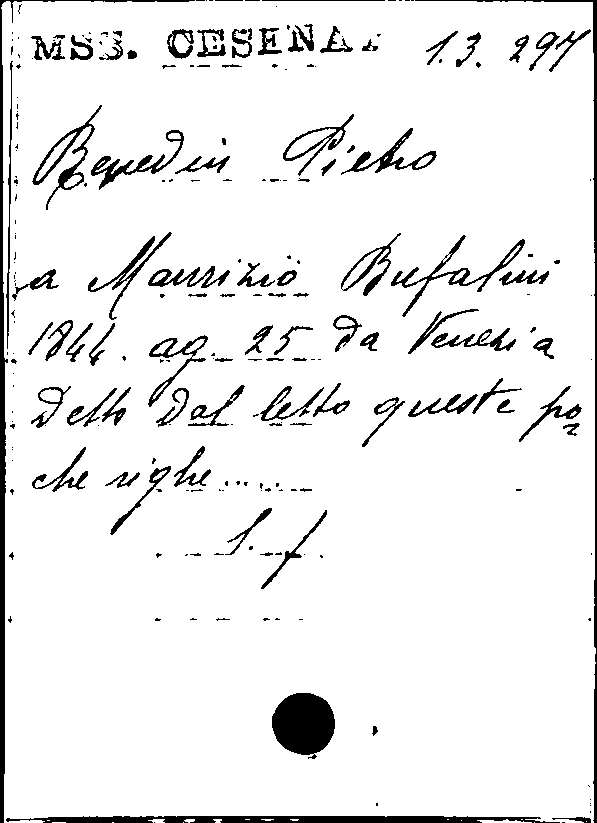 MSS. CESENA. 1.3. 297
Benedin Pietro
a Maurizio Bufalini
1844. ag. 25 da Venezia
Detto dal letto queste po=
che righe.....
l. f.